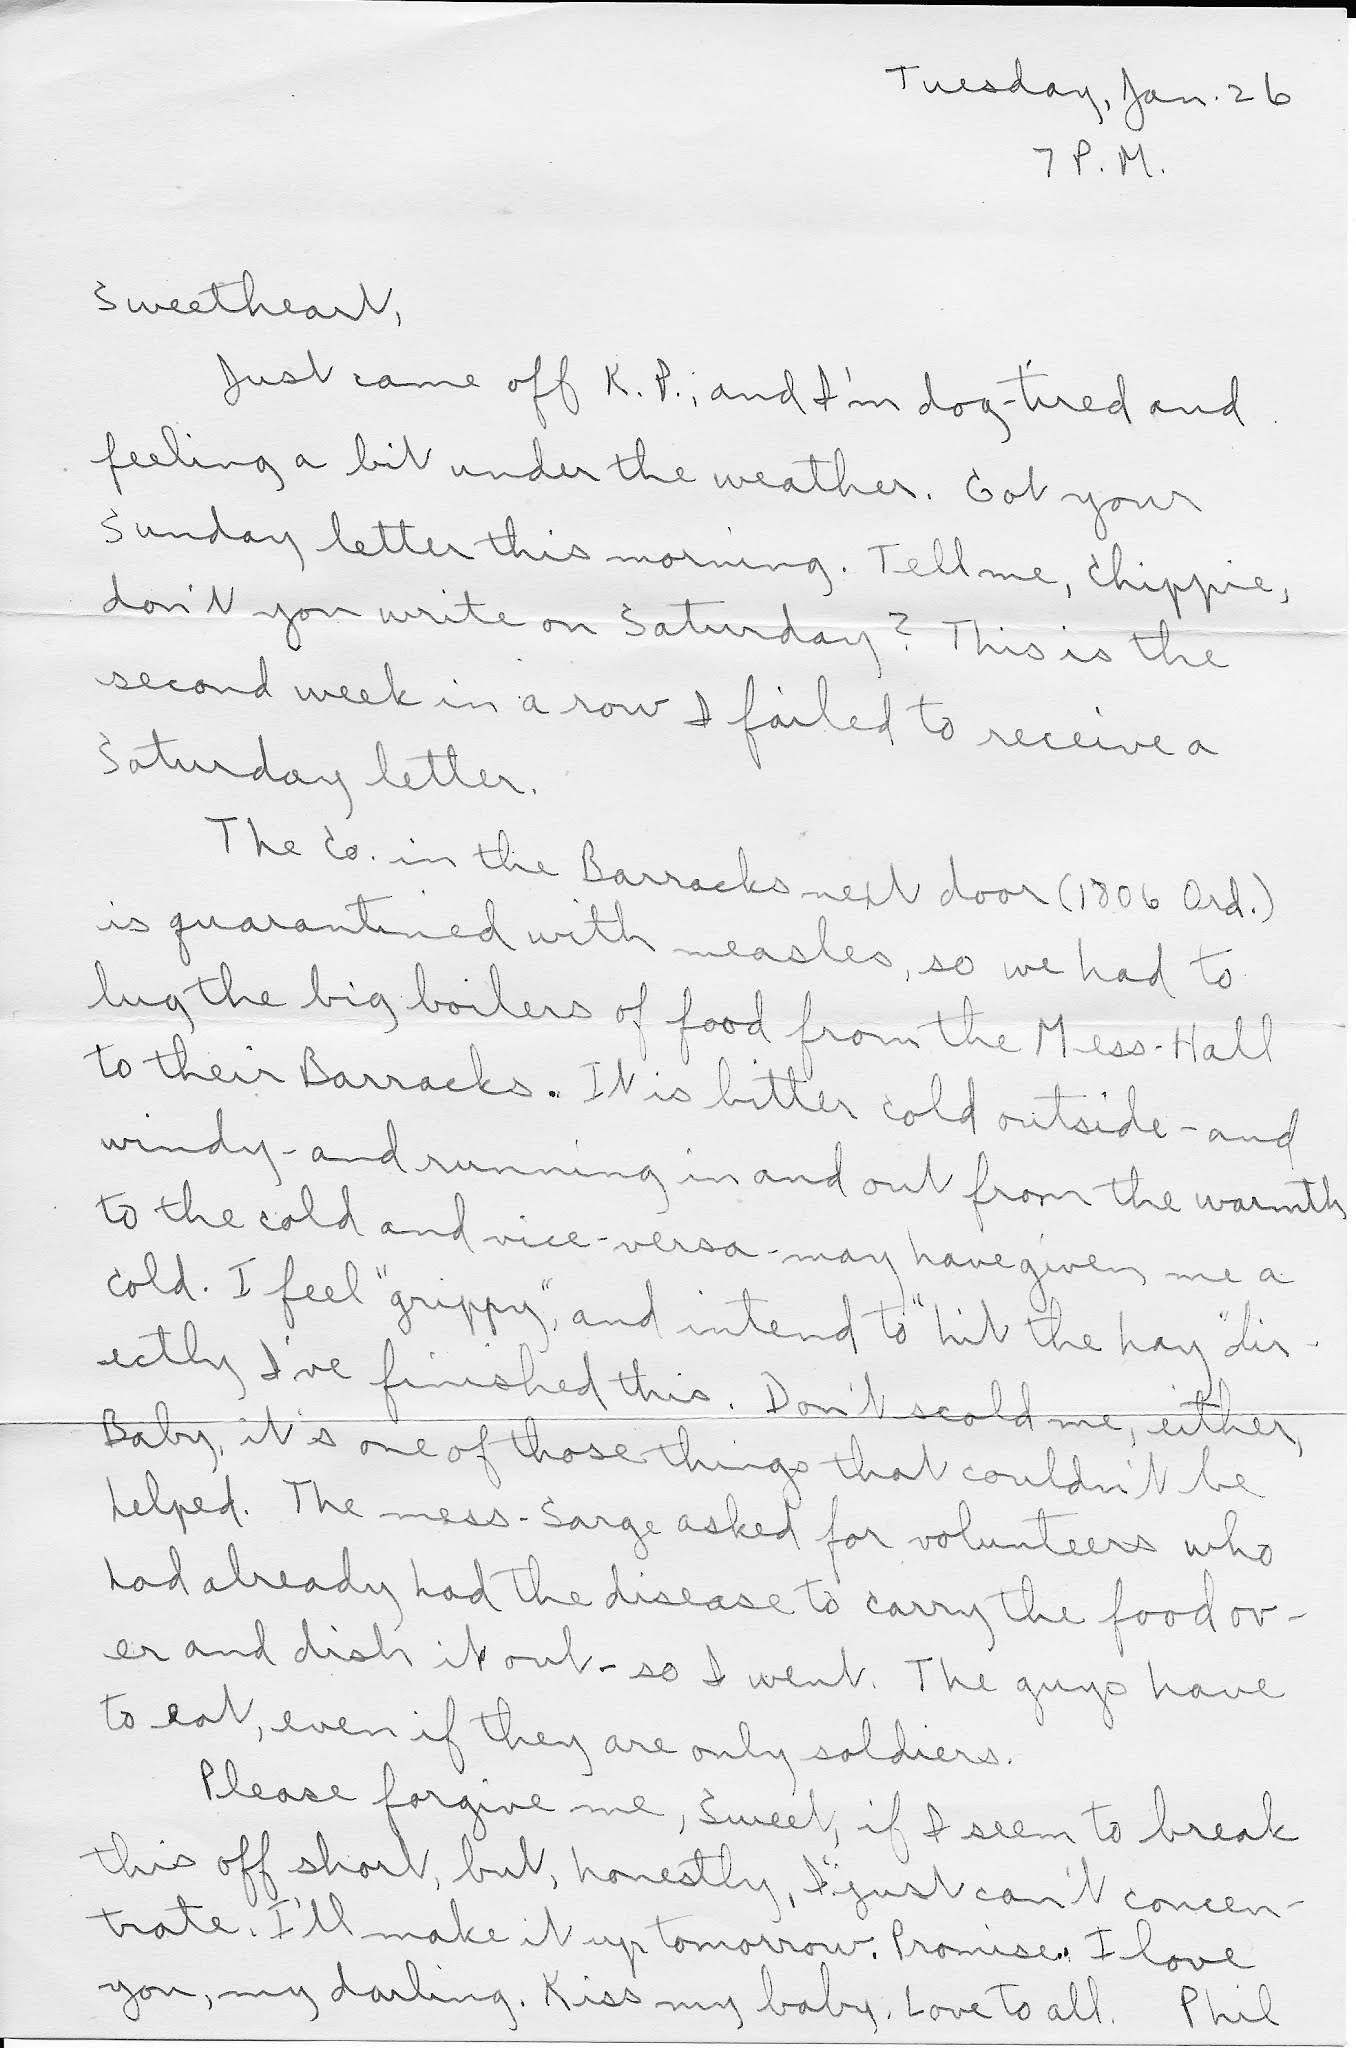 Tuesday, Jan. 26
7 P.M.
Sweetheart,
Just came off K.P., and I'm dog-tired and
feeling a bit under the weather. Got your
Sunday letter this morning. Tell me, Chippie,
don't you write on Saturday? This is the
second week in a row I failed to receive a
Saturday letter.
The Co. in the Barracks next door (1806 Ord.)
is quarantined with measles, so we had to
lug the big boilers of food from the Mess-Hall
to their Barracks. It is bitter cold outside - and
windy - and running in and out from the warmth
to the cold and vice-versa - may have given me a
cold. I feel "grippy", and intend to "hit the hay" dir-
ectly I've finished this. Don't scold me, either,
Baby, it's one of those things that couldn't be
helped. The mess-Sarge asked for volunteers who
had already had the disease to carry the food ov-
er and dish it out - so I went. The guys have
to eat, even if they are only soldiers.
Please forgive me, Sweet, if I seem to break
this off short, but, honestly, I just can't concen-
trate. I'll make it up tomorrow. Promise. I love
you, my darling. Kiss my baby. Love to all. Phil